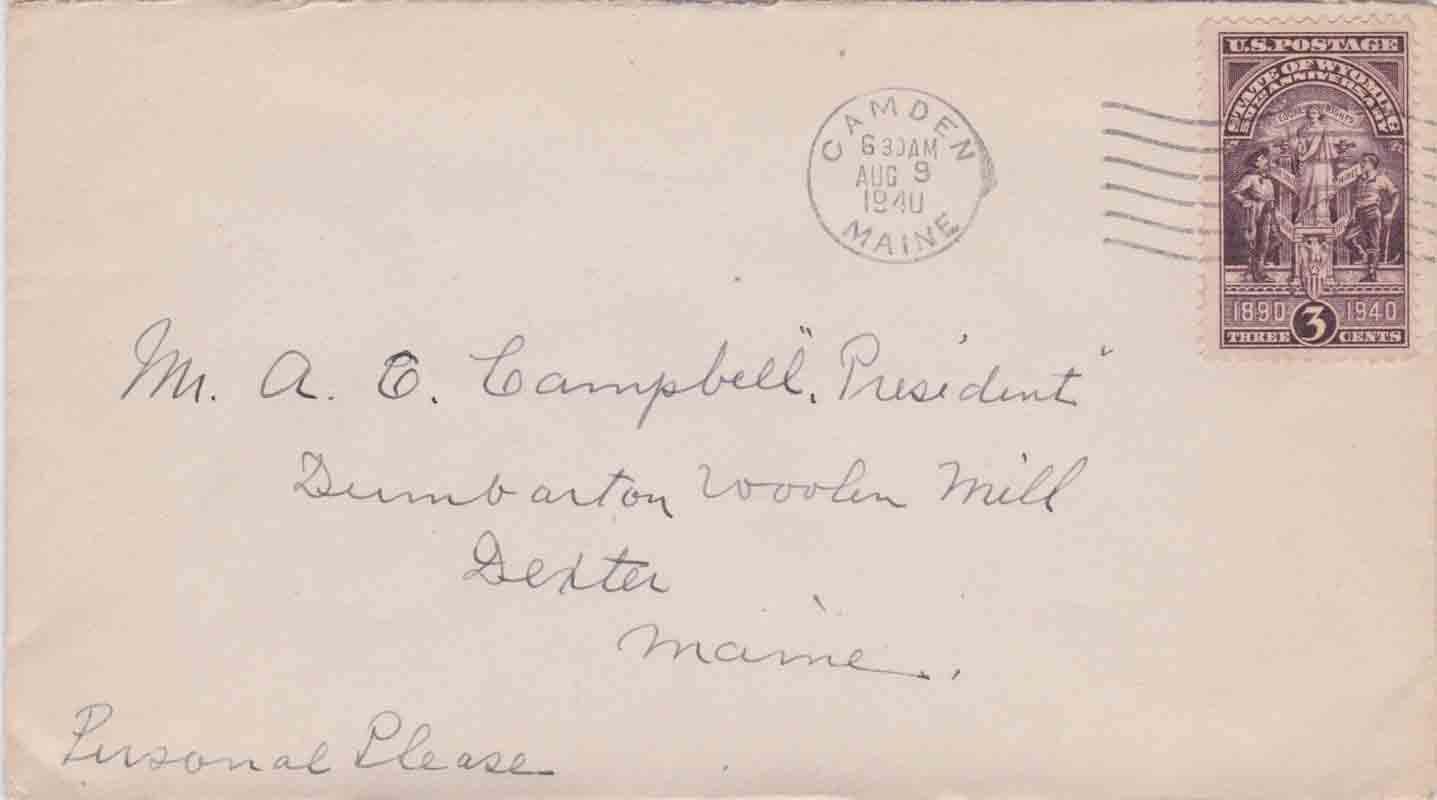 U.S.POSTAGE
STATE OF WYOMING
50TH ANNIVERSARY
EQUAL RIGHTS
1890 1940
3
THREE CENTS
CAMDEN
6 30AM
AUG 9
1940
MAINE
Mr. A. C. Campbell, "President"
Dumbarton Woolen Mill
Dexter
Maine.
Personal Please